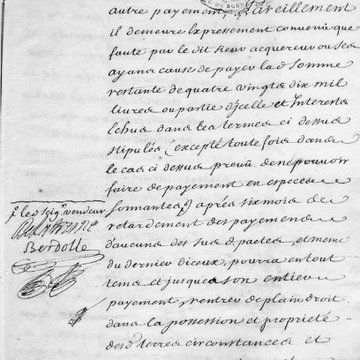 autre payement, Pareillement
il demeure Expressement convenu que
faute par le dit sieur acquereur ou ses
ayans cause de payer la d somme
restante de quatre vingts dix mil
livres ou partie d'jcelle et Interests
Echus dans les termes ci dessus
stipulés excepté toute fois dans
le cas ci dessus preuû de ne pouvoir
faire de payement en especes
sonnantes, après six mois de
retardement des payemens
d'aucuns des sus d pactes, et meme
du dernier diceux, pourra en tout
tems et jusques à son entier
payement, rentrer de plain droit
dans la possession et proprieté
des d terres circonstances et
le seigr vendeur
Berdolle